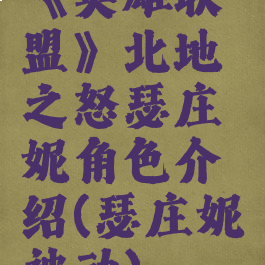 《英雄联
盟》北地
之怒瑟庄
妮角色介
绍(瑟庄妮
被动)